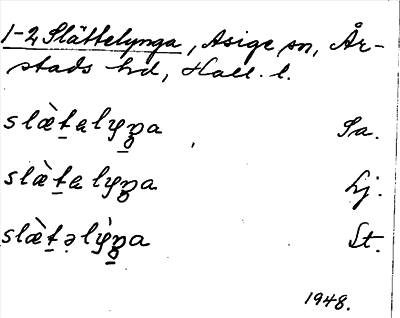 1-2 Slättelynga, Asige sn, År-
stads hd, Hall. l.
slæ̀t̠alyŋa Sa.
slæ̀t̠alyŋa Lj.
slæ̀t̠əlỳŋa St.
1948.